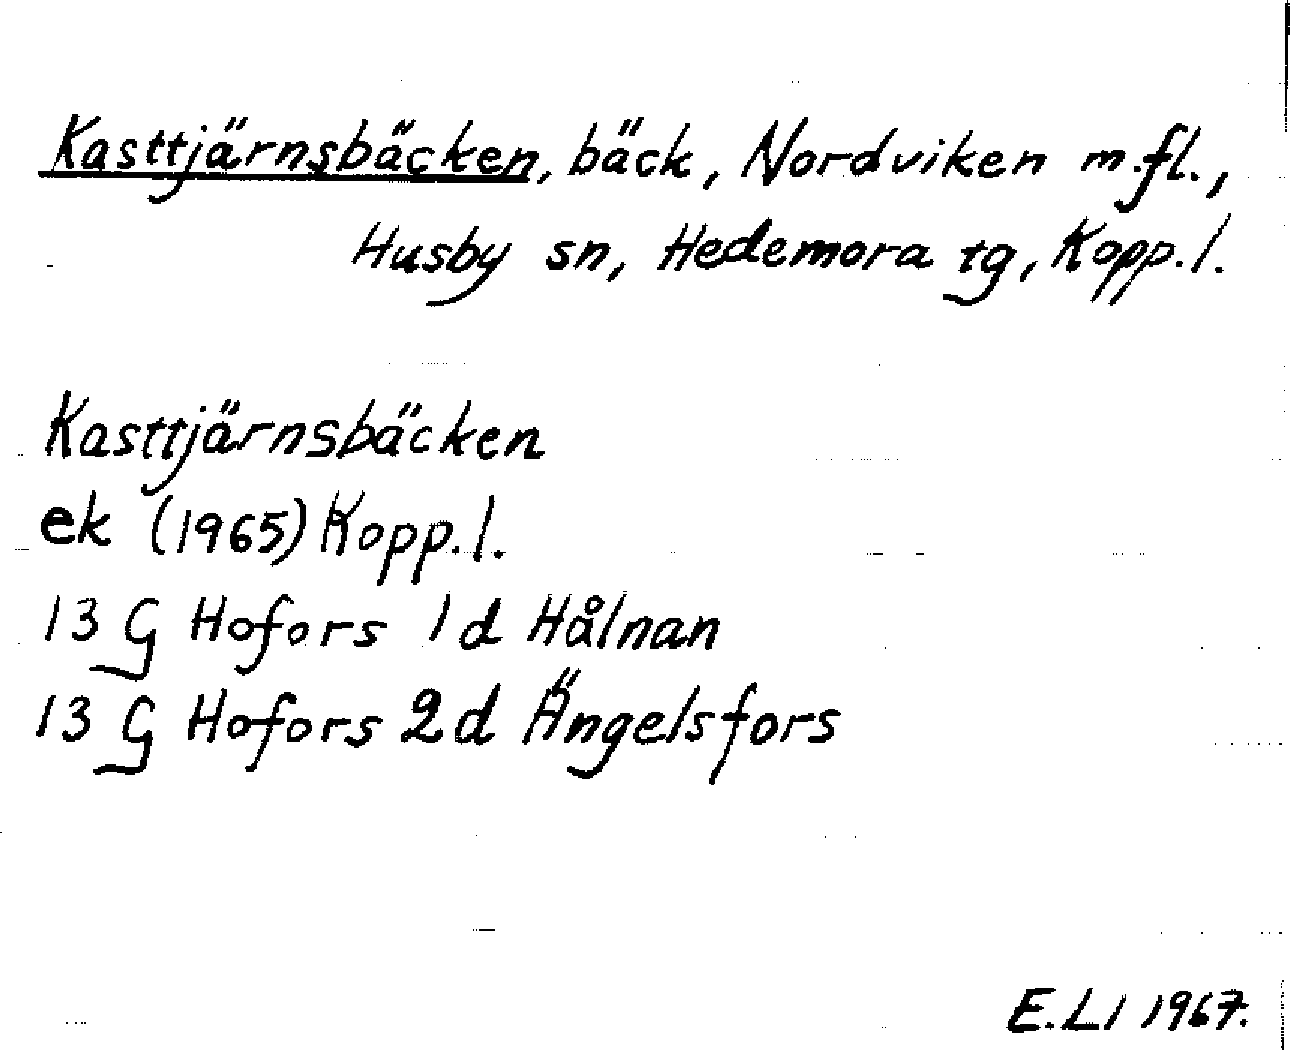 Kasttjärnsbäcken, bäck, Nordviken m.fl.,
Husby sn, Hedemora tg, Kopp.l.
Kasttjärnsbäcken
ek (1965) Kopp.l.
13 G Hofors 1d Hålnan
13 G Hofors 2d Ängelsfors
E.Ll 1967.